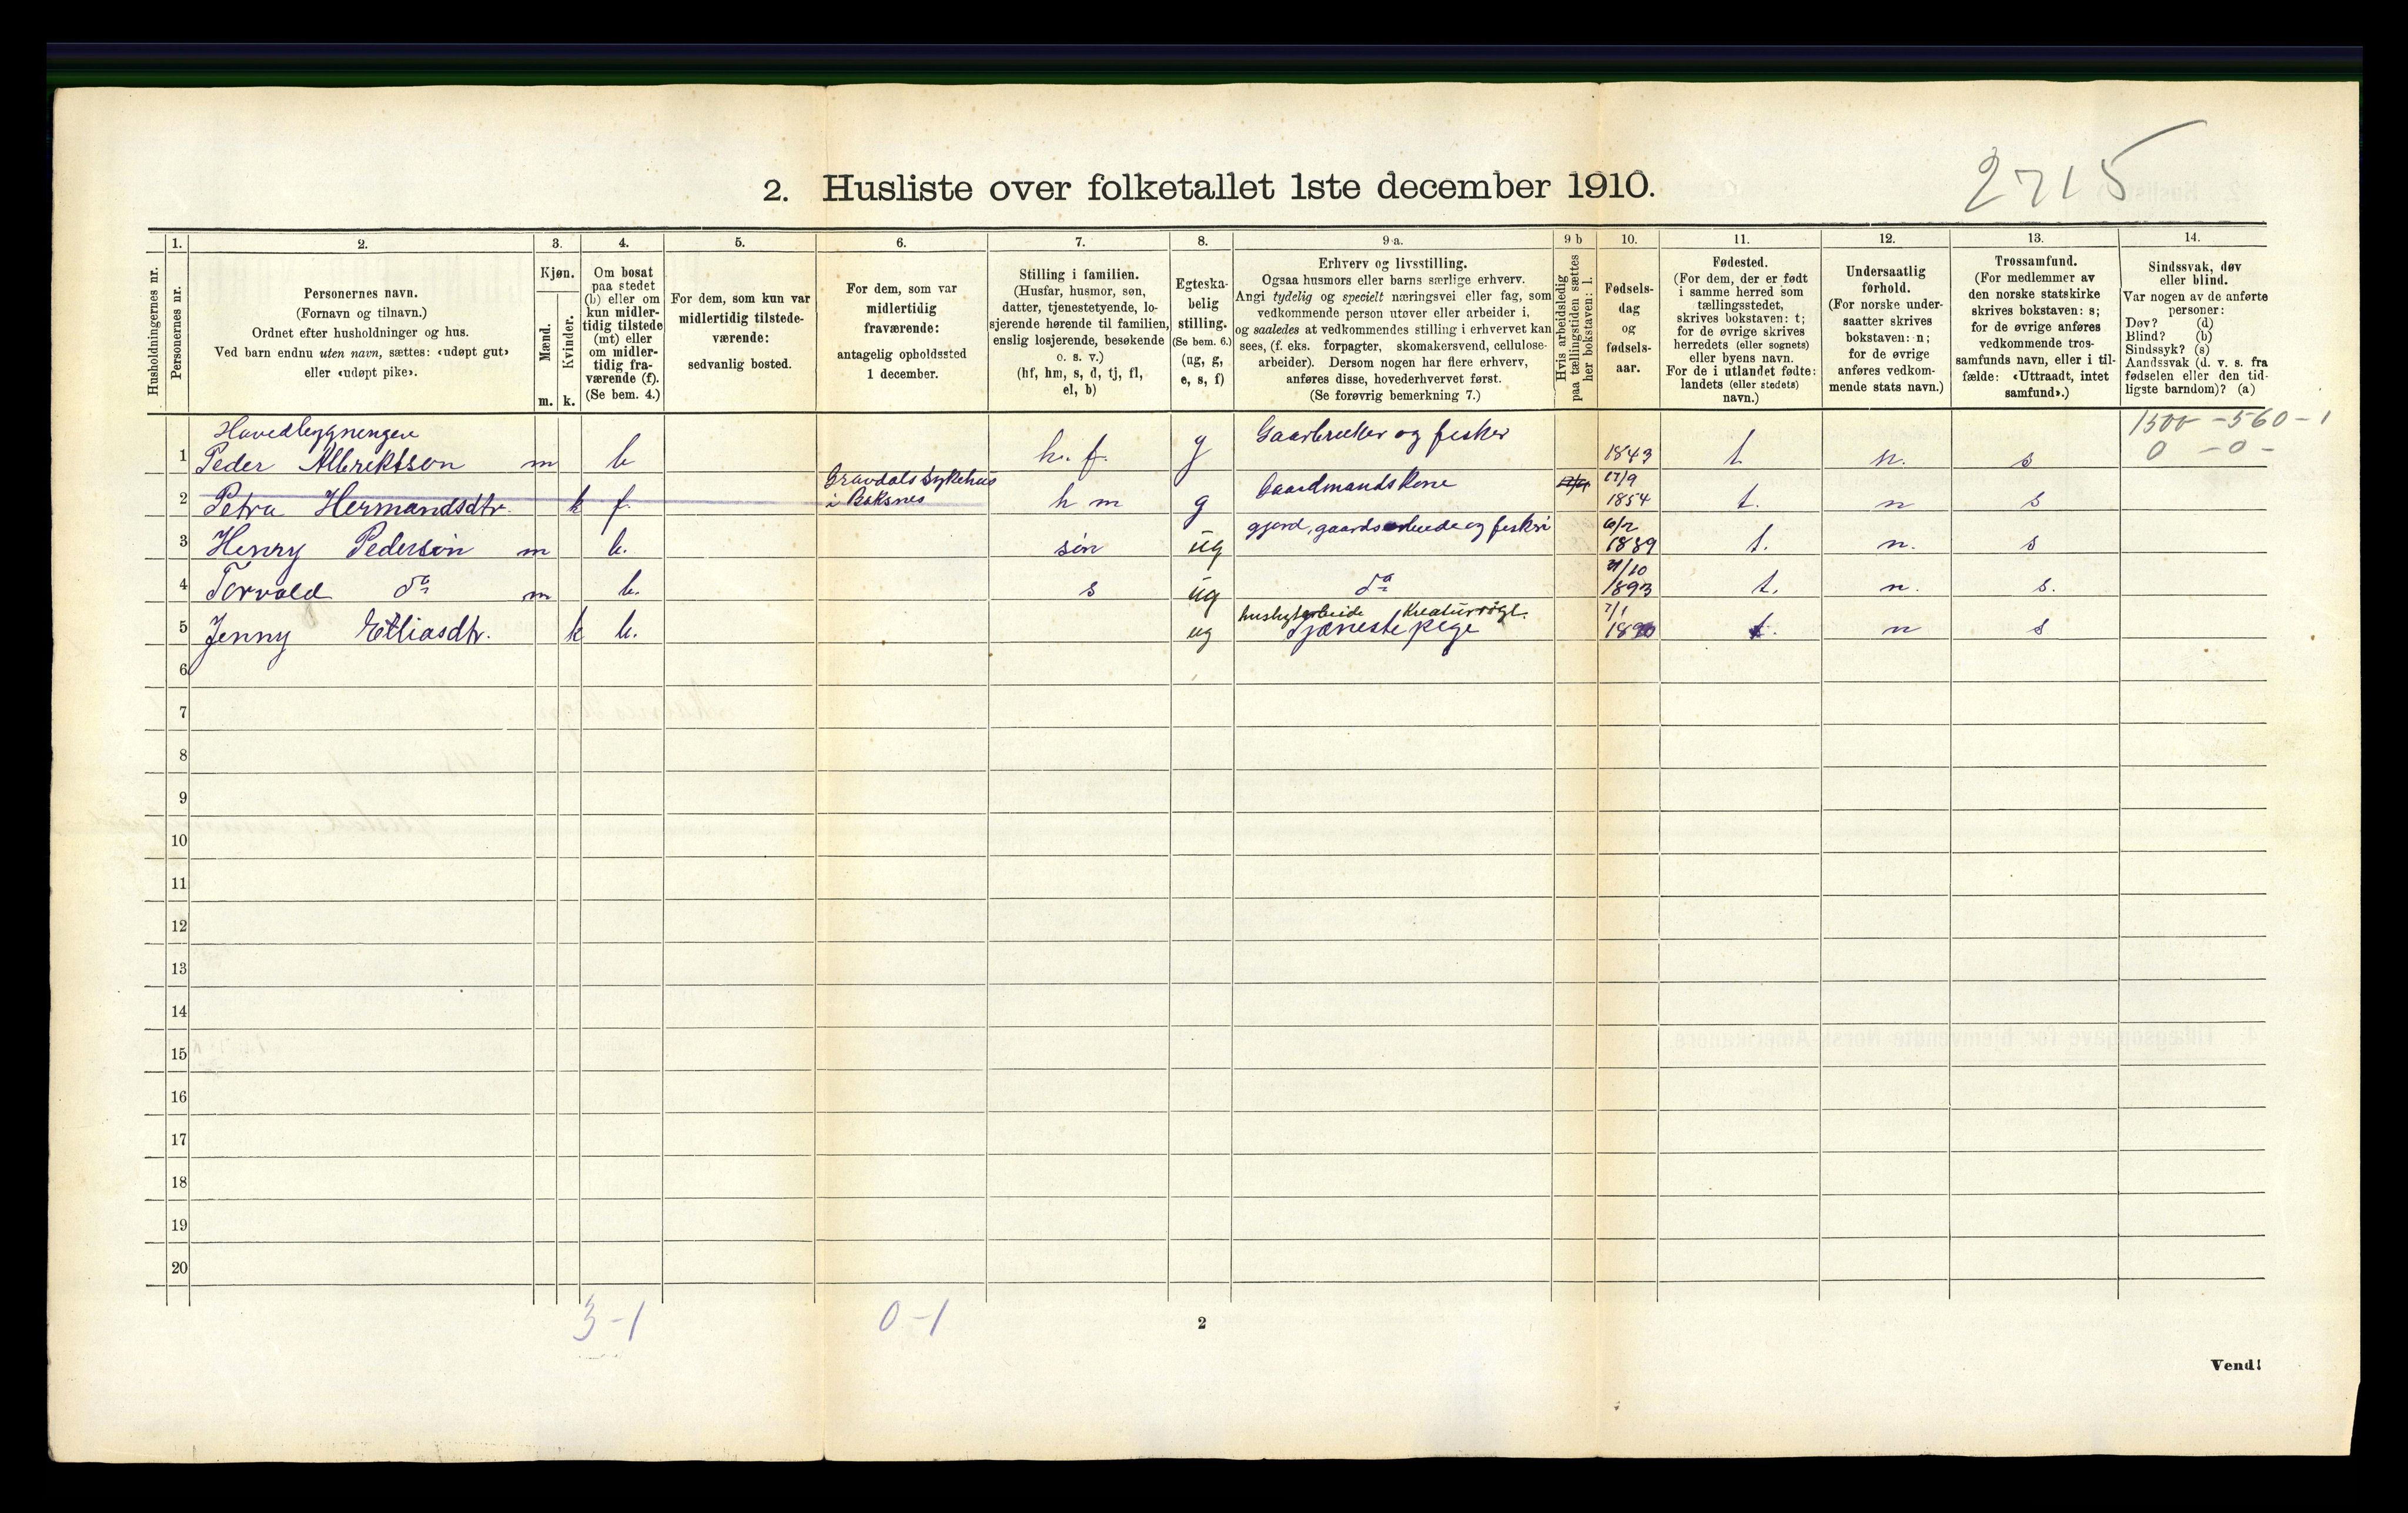 2715
2. Husliste over folketallet 1ste december 1910.
Husholdningernes nr.
1.
Personernes nr.
2.
Personernes navn.
(Fornavn og tilnavn.)
Ordnet efter husholdninger og hus.
Ved barn endnu uten navn, sættes: «udøpt gut»
eller «udøpt pike».
3.
Kjøn.
Mænd.
Kvinder.
m. k.
4.
Om bosat
paa stedet
(b) eller om
kun midler-
tidig tilstede
(mt) eller
om midler-
tidig fra-
værende (f).
(Se bem. 4.)
5.
For dem, som kun var
midlertidig tilstede-
værende:
sedvanlig bosted.
6.
For dem, som var
midlertidig
fraværende:
antagelig opholdssted
1 december.
7.
Stilling i familien.
(Husfar, husmor, søn,
datter, tjenestetyende, lo-
sjerende hørende til familien,
enslig losjerende, besøkende
o. s. v.)
(hf, hm, s, d, tj, fl,
el, b)
8.
Egteska-
belig
stilling.
(Se bem. 6.)
(ug, g,
e, s, f)
9 a.
Erhverv og livsstilling.
Ogsaa husmors eller barns særlige erhverv.
Angi tydelig og specielt næringsvei eller fag, som
vedkommende person utøver eller arbeider i,
og saaledes at vedkommendes stilling i erhvervet kan
sees, (f. eks. forpagter, skomakersvend, cellulose-
arbeider). Dersom nogen har flere erhverv,
anføres disse, hovederhvervet først.
(Se forøvrig bemerkning 7.)
9 b
Hvis arbeidsledig
paa tællingstiden sættes
her bokstaven: l.
10.
Fødsels-
dag
og
fødsels-
aar.
11.
Fødested.
(For dem, der er født
i samme herred som
tællingsstedet,
skrives bokstaven: t;
for de øvrige skrives
herredets (eller sognets)
eller byens navn.
For de i utlandet fødte:
landets (eller stedets)
navn.)
12.
Undersaatlig
forhold.
(For norske under-
saatter skrives
bokstaven: n;
for de øvrige
anføres vedkom-
mende stats navn.)
13.
Trossamfund.
(For medlemmer av
den norske statskirke
skrives bokstaven: s;
for de øvrige anføres
vedkommende tros-
samfunds navn, eller i til-
fælde: «Uttraadt, intet
samfund».)
14.
Sindssvak, døv
eller blind.
Var nogen av de anførte
personer:
Døv? (d)
Blind? (b)
Sindssyk? (s)
Aandssvak (d. v. s. fra
fødselen eller den tid-
ligste barndom)? (a)
Hovedbygningen 1500 - 560 - 1
1 Peder Albriktson m b h. f. g Gaarbruker og fisker 1843 t n. s 0 - 0 -
2 Petra Hermandsdtr. k f Gravdals Sykehus i Boksnes h m g Gaardmandskone 17/9 1854 t. n s
3 Henry Pederson m b. søn ug gjord, gaardsarbeide og fiskri 6/2 1889 t. n. s
4 Torvald do m b. s ug do 31/10 1893 t. n. s.
5 Jenny Elliasdtr. k b. ug husligt arbeide Kreaturrögt. Tjænestepige 7/1 1890 t. n s
6
7
8
9
10
11
12
13
14
15
16
17
18
19
20
3-1 0-1
2
Vend!